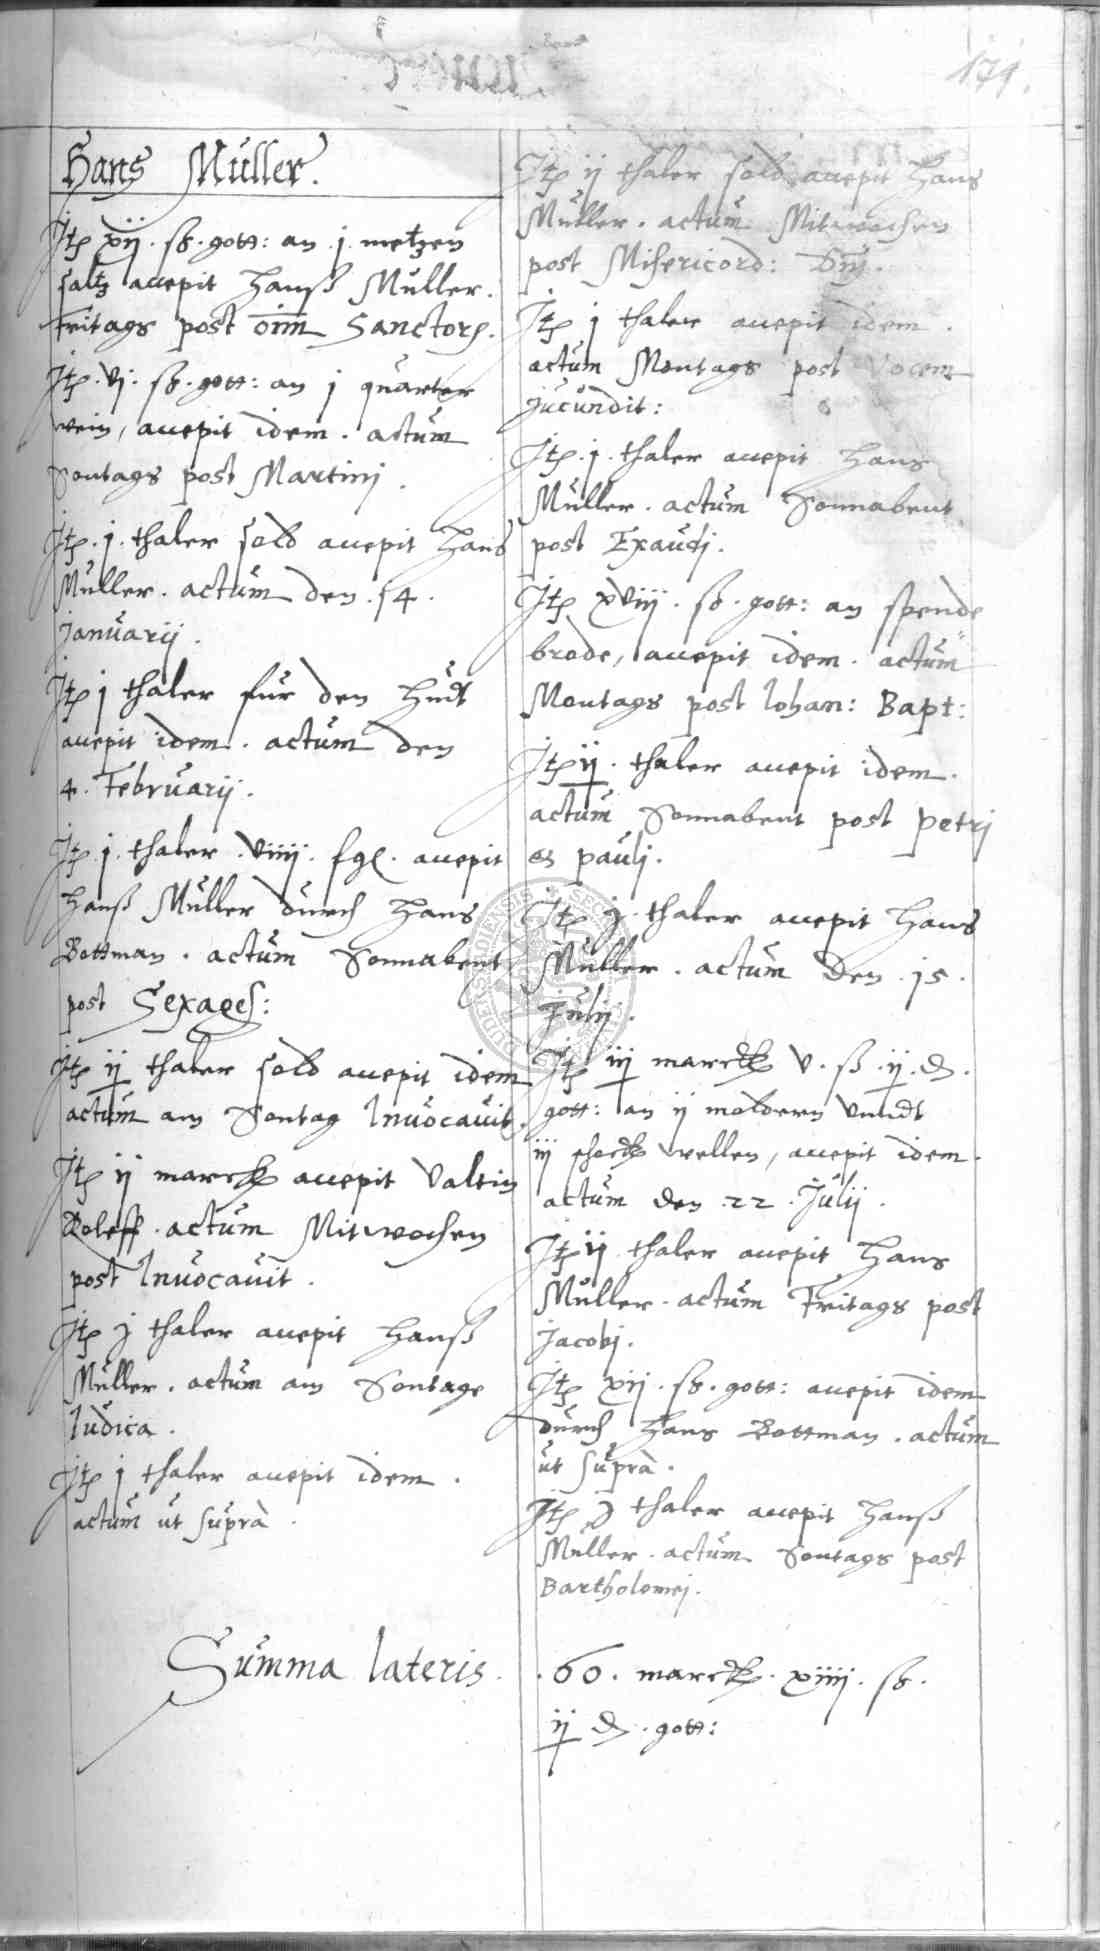 179.
Hans Müller.
Itē xij. sß. gott: an .j. metzen
saltz accepit Hanß Müller.
Fritags post om̄n Sanctorꝭ.
Itē .vj. sß. gott: an j quarter
wein, accepit idem. actum
Sontags post Martinj.
Itē .j. thaler sold accepit Hans
Müller. actum den .14.
Januarij.
Itē j thaler für den Hudt
accepit idem. actum den
4. Februarij.
Itē .j. thaler .viiij. fgl. accepit
Hanß Müller durch Hans
Bottman. actum Sonnabent
post Sexages:
Itē ij thaler sold accepit idem
actum am Sontag Invocavit.
Itē ij marck accepit Valtin
actum Mitwochen
post Invocavit.
Itē j thaler accepit Hanß
Müller. actum am Sontage
Iudica.
Itē j thaler accepit idem.
actum ut suprà.
Itē ij thaler sold accepit Hans
Müller. actum Mitwochen
post Misericord: Dnj.
Itē j thaler accepit idem.
actum Montags post Vocem
jucundit:
Itē .j. thaler accepit Hans
Müller. actum Sonnabent
post Exaudj.
Itē xviij. sß. gott: an spende
brode, accepit idem. actum
Montags post Iohan: Bapt:
Itē ij. thaler accepit idem.
actum Sonnabent post Petrj
et paulj.
Itē j. thaler accepit Hans
Müller. actum den .15.
Julij.
Itē iij marck v. ß .ij. d.
gott: an ij moldern vnndt
iij schock wellen, accepit idem.
actum den .22. Julij.
Itē ij thaler accepit Hans
Müller. actum Fritags post
Jacobj.
Itē xij. sß. gott: accepit idem
durch Hans Bottman. actum
ut suprà.
Itē j thaler accepit Hanß
Müller. actum Sontags post
Bartholomej.
Summa lateris. .60. marck. xiiij. sß.
ij d. gott: